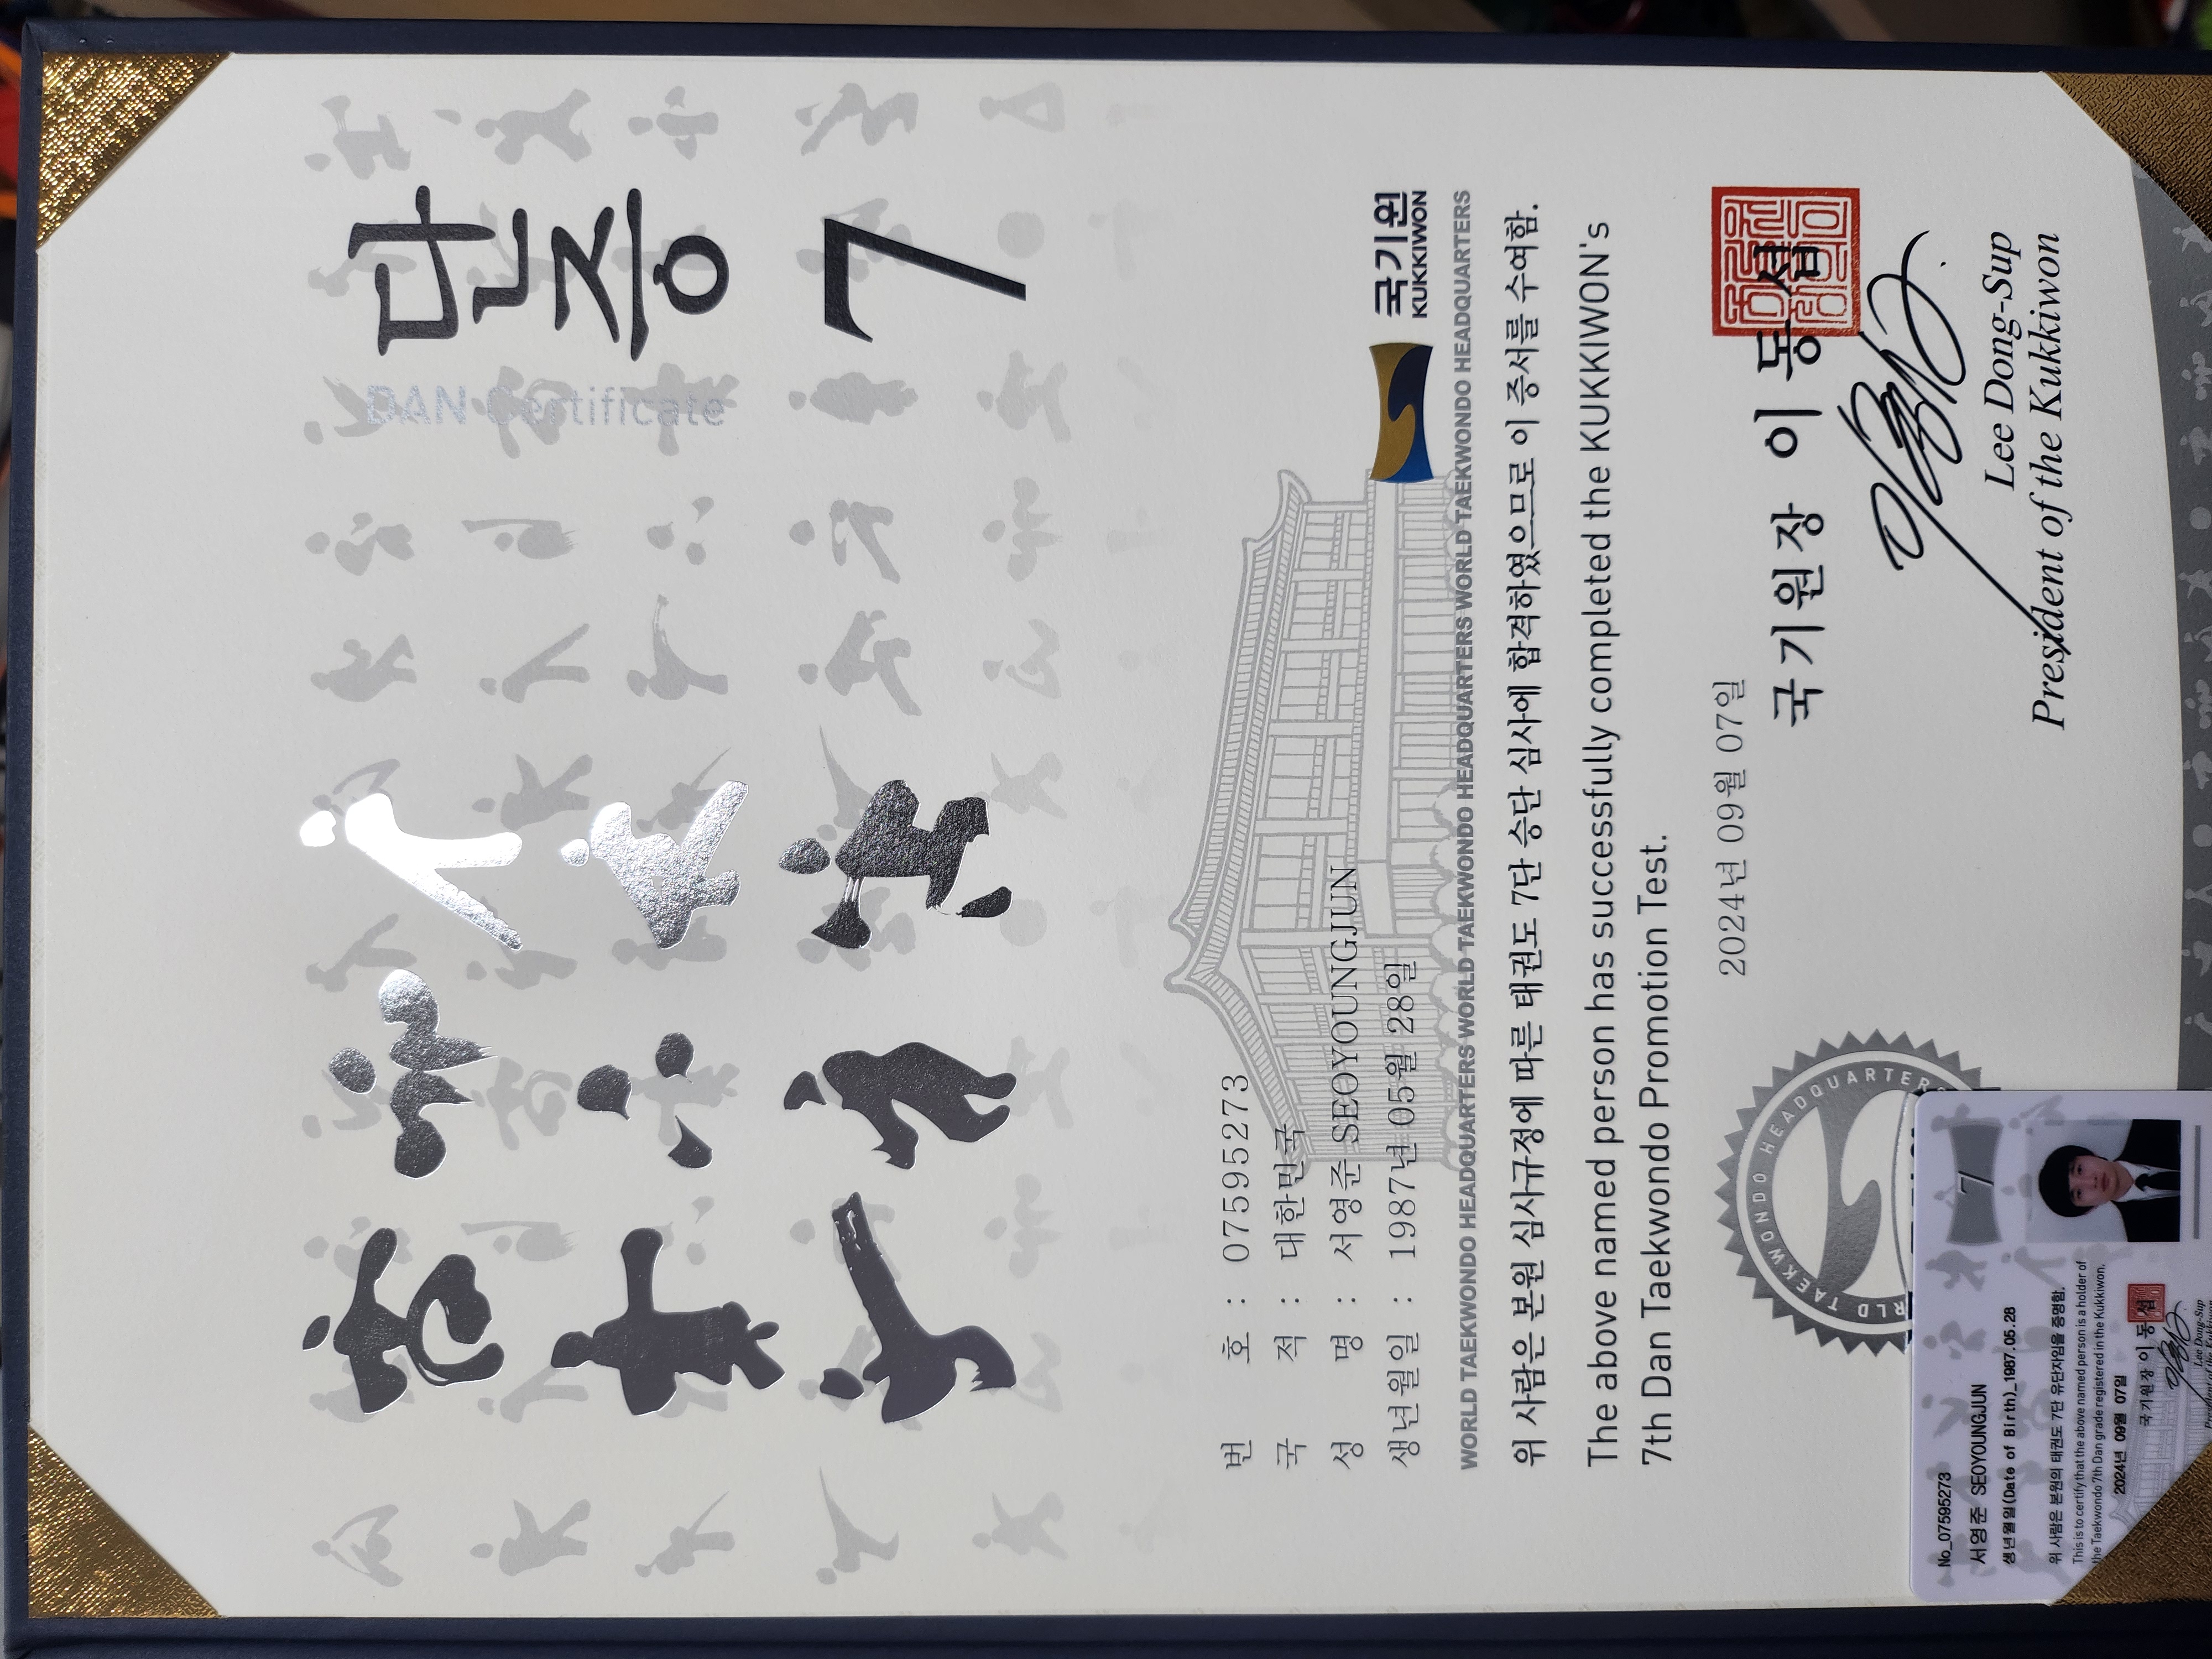 단증
DAN Certificate
7
번 호 : 07595273
국 적 : 대한민국
성 명 : 서영준 SEOYOUNGJUN
생년월일 : 1987년 05월 28일
국기원
KUKKIWON
WORLD TAEKWONDO HEADQUARTERS WORLD TAEKWONDO HEADQUARTERS WORLD TAEKWONDO HEADQUARTERS WORLD TAEKWONDO HEADQUARTERS
위 사람은 본원 심사규정에 따른 태권도 7단 승단 심사에 합격하였으므로 이 증서를 수여함.
The above named person has successfully completed the KUKKIWON's
7th Dan Taekwondo Promotion Test.
2024년 09월 07일
국기원장 이동섭
Lee Dong-Sup
President of the Kukkiwon
RLD TAEKWONDO HEADQUARTERS
7
No_07595273
서영준 SEOYOUNGJUN
생년월일(Date of Birth)_1987.05.28
위 사람은 본원의 태권도 7단 유단자임을 증명함.
This is to certify that the above named person is a holder of
the Taekwondo 7th Dan grade registered in the Kukkiwon.
2024년 09월 07일
국기원장 이동섭
Lee Dong-Sup